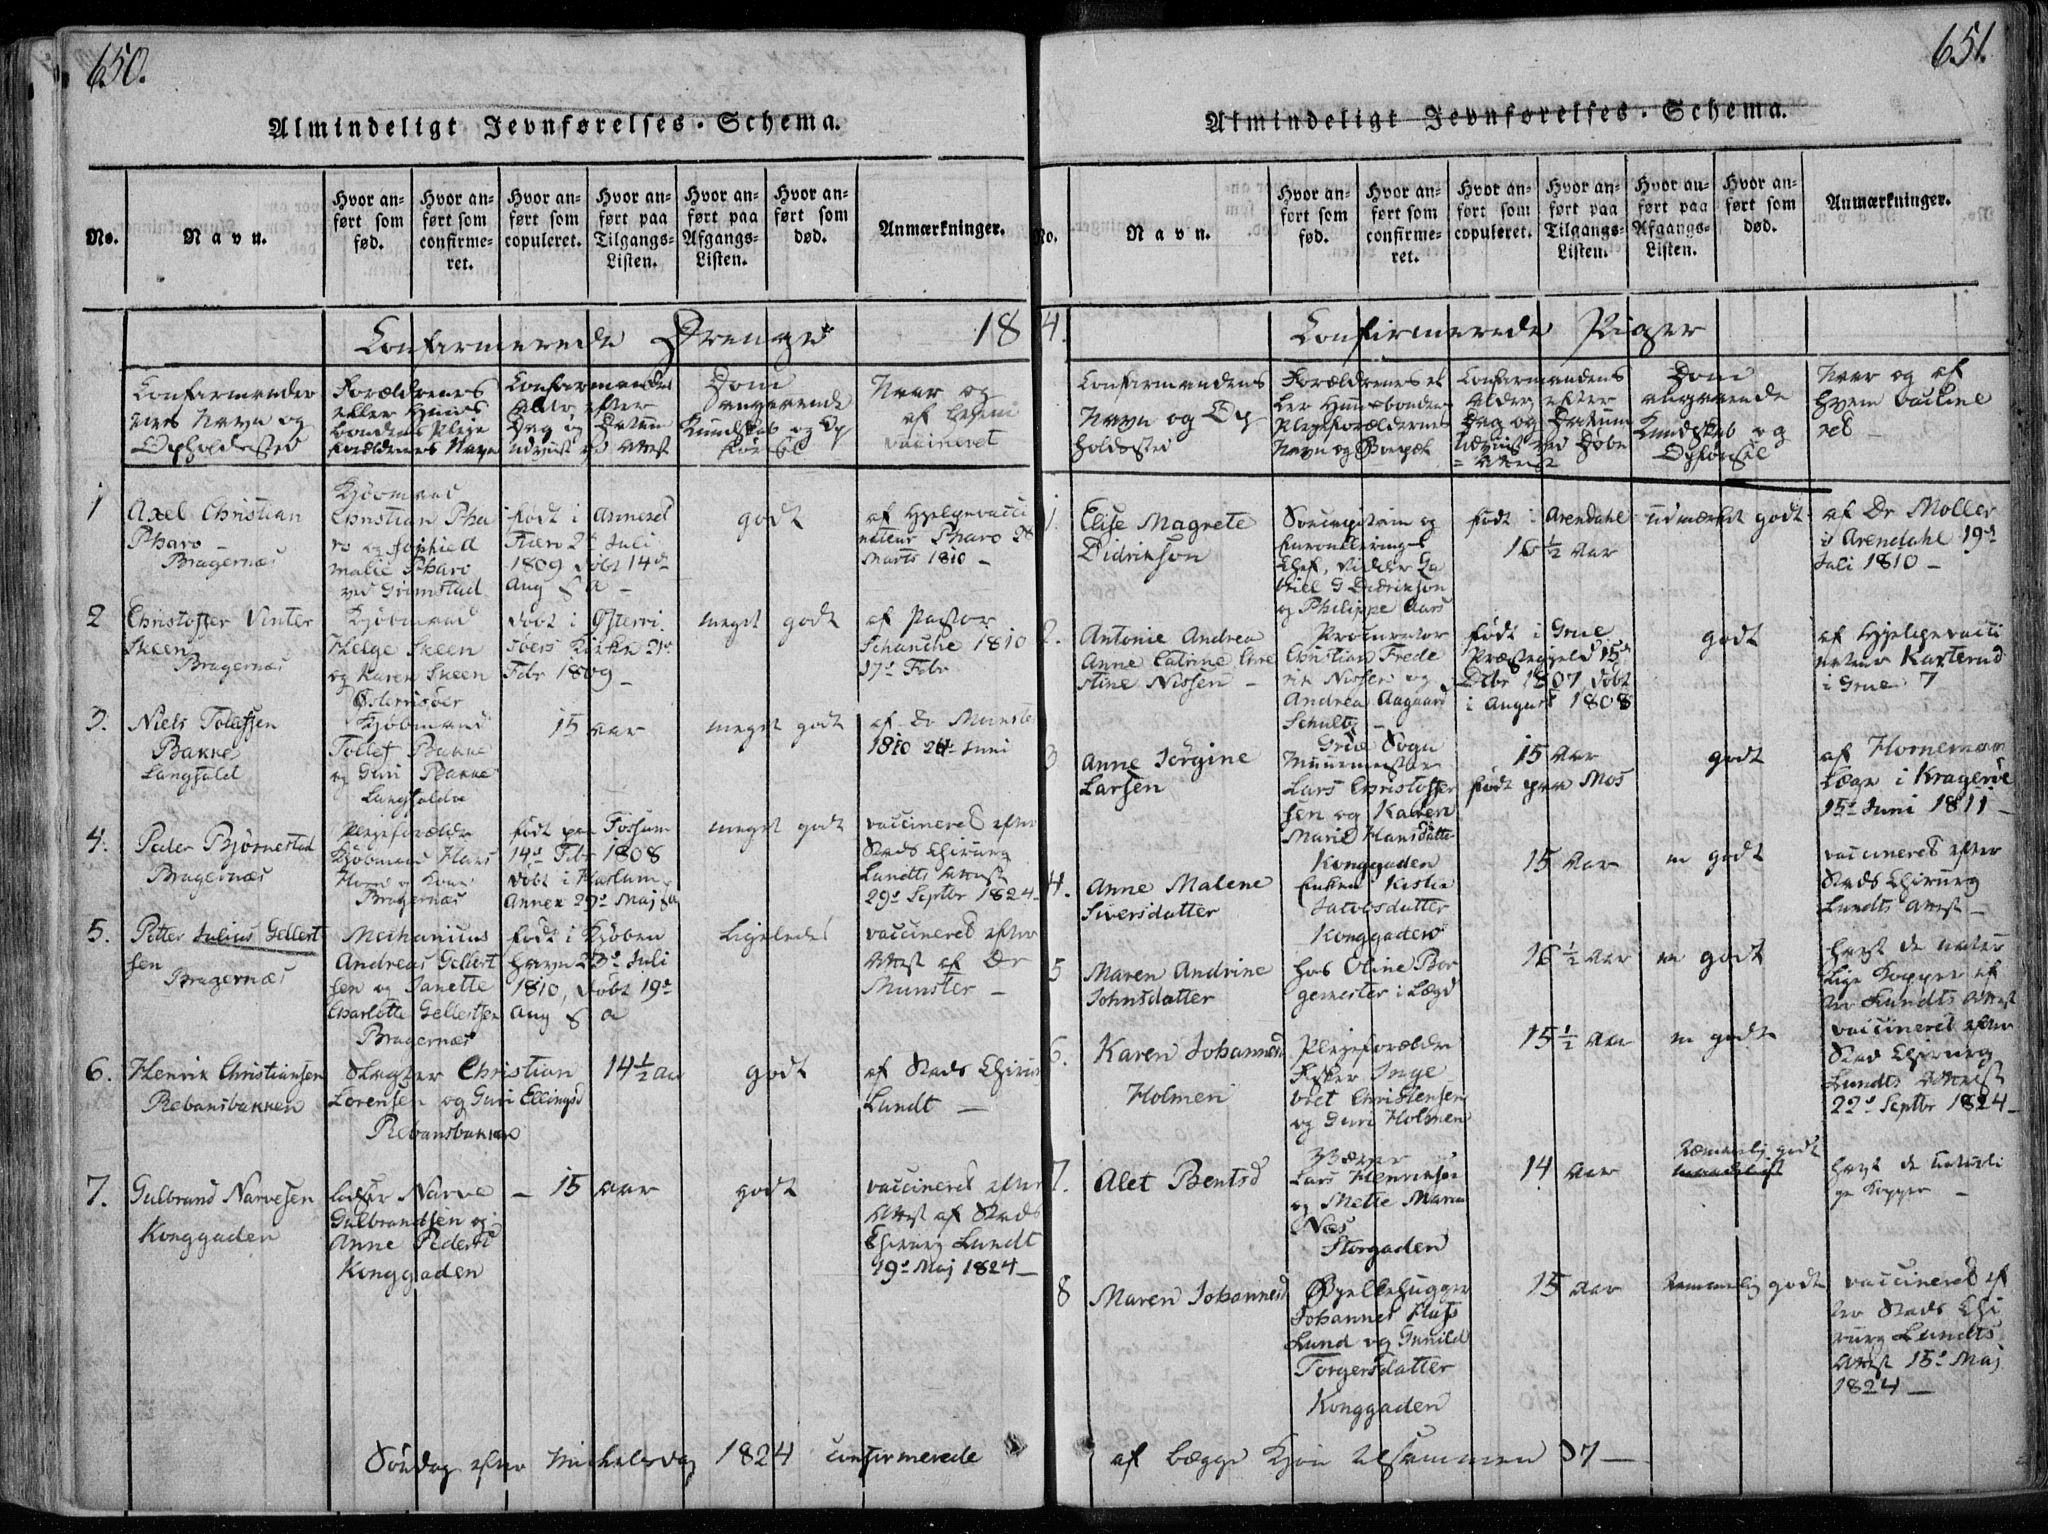 650.
Almindeligt Jevnførelses-Schema.
No.
Navn.
Hvor anført som fød.
Hvor anført som confirmeret.
Hvor anført som copuleret.
Hvor anført paa Tilgangs-Listen.
Hvor anført paa Afgangs-Listen.
Hvor anført som død.
Anmærkninger.
Confirmerede Drenge
18
Confirmander
nes Navn og
Opholdssted
Forældrenes
eller Huus
bondens Pleje
forældrenes Navn
Confirmandens
Alder efter
Dag og Datum
udviist ved Attest
Dom
angaaende
Kundskab og Op
førsel
Naar og
af hvem
vaccineret
1
Axel Christian
Pharo
Bragernæs
Kjøbmand
Christian Pha
ro og Sophie A
malie Pharo
ved Grimstad
født i Annexet
Fiære 2d Juli
1809 døbt 14de
Aug s a
godt
af Hjelpevacci
nateur Pharo 28
Marts 1810 –
2
Christoffer Vinter
Skeen
Bragernæs
Kjøbmand
Helge Skeen
og Karen Skeen
Østerrisøer
døbt i Østerri
søers Kirke 21de
Febr 1809 –
meget godt
af Pastor
Schanche 1810
17de Febr
3.
Niels Tollefsen
Bakke
Langsald
Kjøbmand
Tollef Bakke
og Guri Bakke
Langsaldve
15 Aar
meget godt
af Dr Munster
1810 24de Juni
4.
Peder Bjørnestad
Bragernæs
Plejeforældre
Kjøbmand Hans
Horn og Kone
Bragernæs
født paa Fossum
14de Febr 1808
døbt i Haslum
Annex 29de Maj s a
meget godt
vaccineret efter
Stads Chirurg
Lundts Attest
29de Septbr 1824
5.
Petter Julius Gellert
sen
Bragernæs
Mechanicus
Andreas Gellert
sen og Janette
Charlotte Gellertsen
Bragernæs
født i Kjøben
havn 23de Juli
1810, døbt 19de
Aug s a
Ligeledes
vaccineret efter
Attest af Dr
Munster –
6.
Henrik Christiansen
Rebansbakken
Slagter Christian
Lorensen og Guri Ellingsd
Rebansbakken
14½ Aar
godt
af Stads Chirur
Lundt –
7.
Gulbrand Narvesen
Konggaden
Lodser Narve
Gulbrandsen og
Anne Pedersd
Konggaden
– 15 Aar
godt
vaccineret efter
Attest af Stads
Chirurg Lundt
19de Maj 1824 –
Søndag efter Michelsdag 1824 confirmerede
651.
Almindeligt Jevnførelses-Schema.
No.
Navn.
Hvor anført som fød.
Hvor anført som confirmeret.
Hvor anført som copuleret.
Hvor anført paa Tilgangs-Listen.
Hvor anført paa Afgangs-Listen.
Hvor anført som død.
Anmærkninger.
4.
Confirmerede Piger
Confirmandens
Navn og Op
holdssted
Forældrenes el
ler Huusbondens
Plejeforældrenes
Navn og Bopæl
Confirmandens
Alder efter
Dag og Datum
udviist ved Døbe
Attest
Dom
angaaende
Kundskab og
Opførsel
Naar og af
hvem vaccine
ret –
1.
Elise Magrete
Didrikson
Søecapitain og
Enroullerings
Chef, Ridder Ga
briel G Didrikson
og Philippe Aars
født i Arendahl
16½ Aar
udmærket godt
af Dr Moller
i Arendahl 19de
Juli 1810 –
2.
Antonie Andrea
Anne Catrine Chri
stine Nissen –
Procurator
Christian Frede
rik Nissen og
Andrea Aagaard
Schultz –
Grue Sogn
født i Grue
Præstegjeld 15de
Debr 1807 døbt
i August 1808
godt
af Hjelpevacci
nateur Karterud
i Grue 7
3
Anne Jørgine
Larsen
Muurmester
Lars Christoffer
sen og Karen
Marie Hansdatter
Konggaden
15 Aar
født paa Mos
godt
af Horneman
Læge i Kragerøe
15de Juni 1811 –
4.
Anne Malene
Siversdatter
Enken Kistie
Jacobsdatter
Konggaden
15 Aar
m godt
vaccineret efter
Stads Chirurg
Lundts Attest –
5
Maren Andrine
Johnsdatter
hos Oline Bor
gemester i Lægd
16½ Aar
m godt
havt de natur
lige Kopper ef
ter Lundts Attest
6.
Karen Johannesd
Holmen
Plejeforældre
Fisker Inge
bret Christensen
og Guri Holmen
15½ Aar
m godt
vaccineret efter
Stad Chirurg
Lundts Attest
22de Septbr 1824 –
7.
Alet Bentsd
Væver
Lars Henriksen
og Mette Maria
Næs
Storgaden
14 Aar
Temmelig godt
havt de naturli
ge Kopper –
8
Maren Johannesd
Pjellehugger
Johannes Hafs
Lund og Gunild
Torgersdatter
Konggaden
15 Aar
Temmelig godt
vaccineret ef
ter Stads Chi
rurg Lundts
Attest 15de Maj
1824 –
af begge Kjøn alsammen 37 –